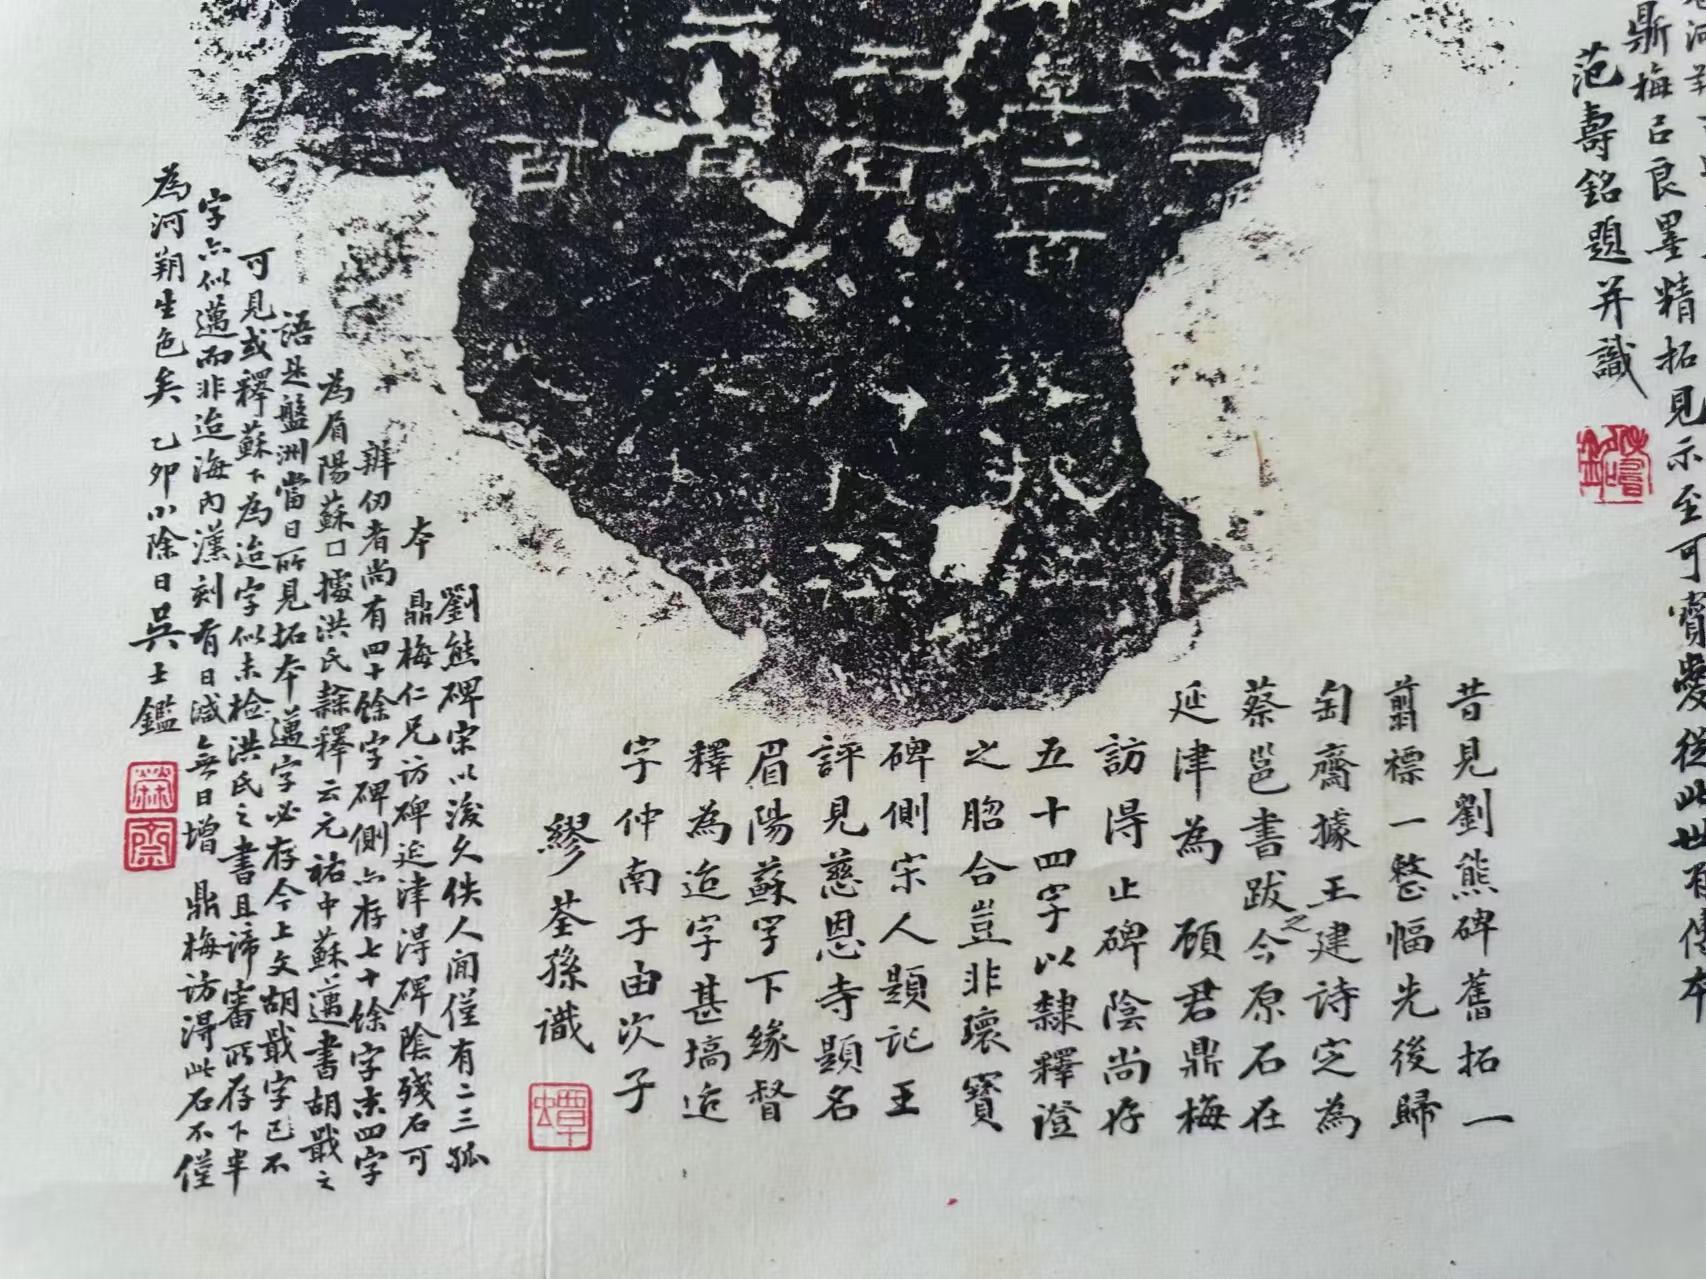 鼎梅㠯良墨精拓見示至可寶愛從此世有傳本
范壽銘題并識
昔見劉熊碑舊拓一
翦褾一整幅先後歸
匋齋據王建詩定為
蔡邕書跋之今原石在
延津為 顧君鼎梅
訪得止碑陰尚存
五十四字以隸釋證
之脗合豈非瓌寶
碑側宋人題記王
評見慈恩寺題名
眉陽蘇字下緣督
釋為迨字甚塙迨
字仲南子由次子
繆荃孫識
劉熊碑宋以後久佚人間僅有二三孤
本 鼎梅仁兄訪碑延津得碑陰殘石可
辨仞者尚有四十餘字碑側亦存七十餘字末四字
為眉陽蘇口據洪氏隸釋云元祐中蘇邁書胡戢之
語是盤洲當日所見拓本邁字必存今上文胡戢字已不
可見或釋蘇下為迨字似未檢洪氏之書且諦審所存下半
字亦似邁而非迨海內漢刻有日減無日增 鼎梅訪得此石不僅
為河朔生色矣 乙卯小除日吳士鑑